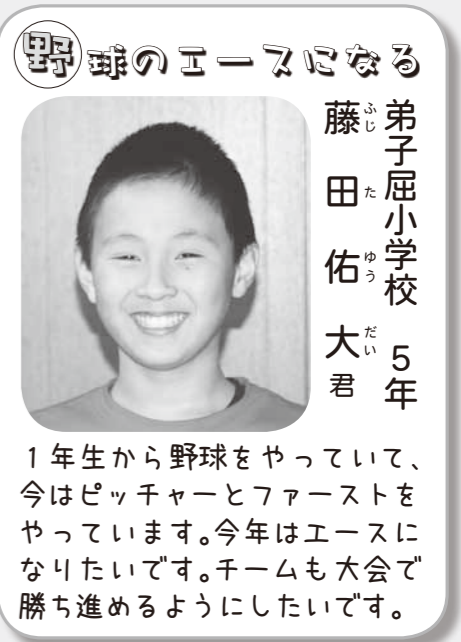 野球のエースになる
弟子屈小学校 5年
藤田佑大君
ふじたゆうだい
1年生から野球をやっていて、
今はピッチャーとファーストを
やっています。今年はエースに
なりたいです。チームも大会で
勝ち進めるようにしたいです。